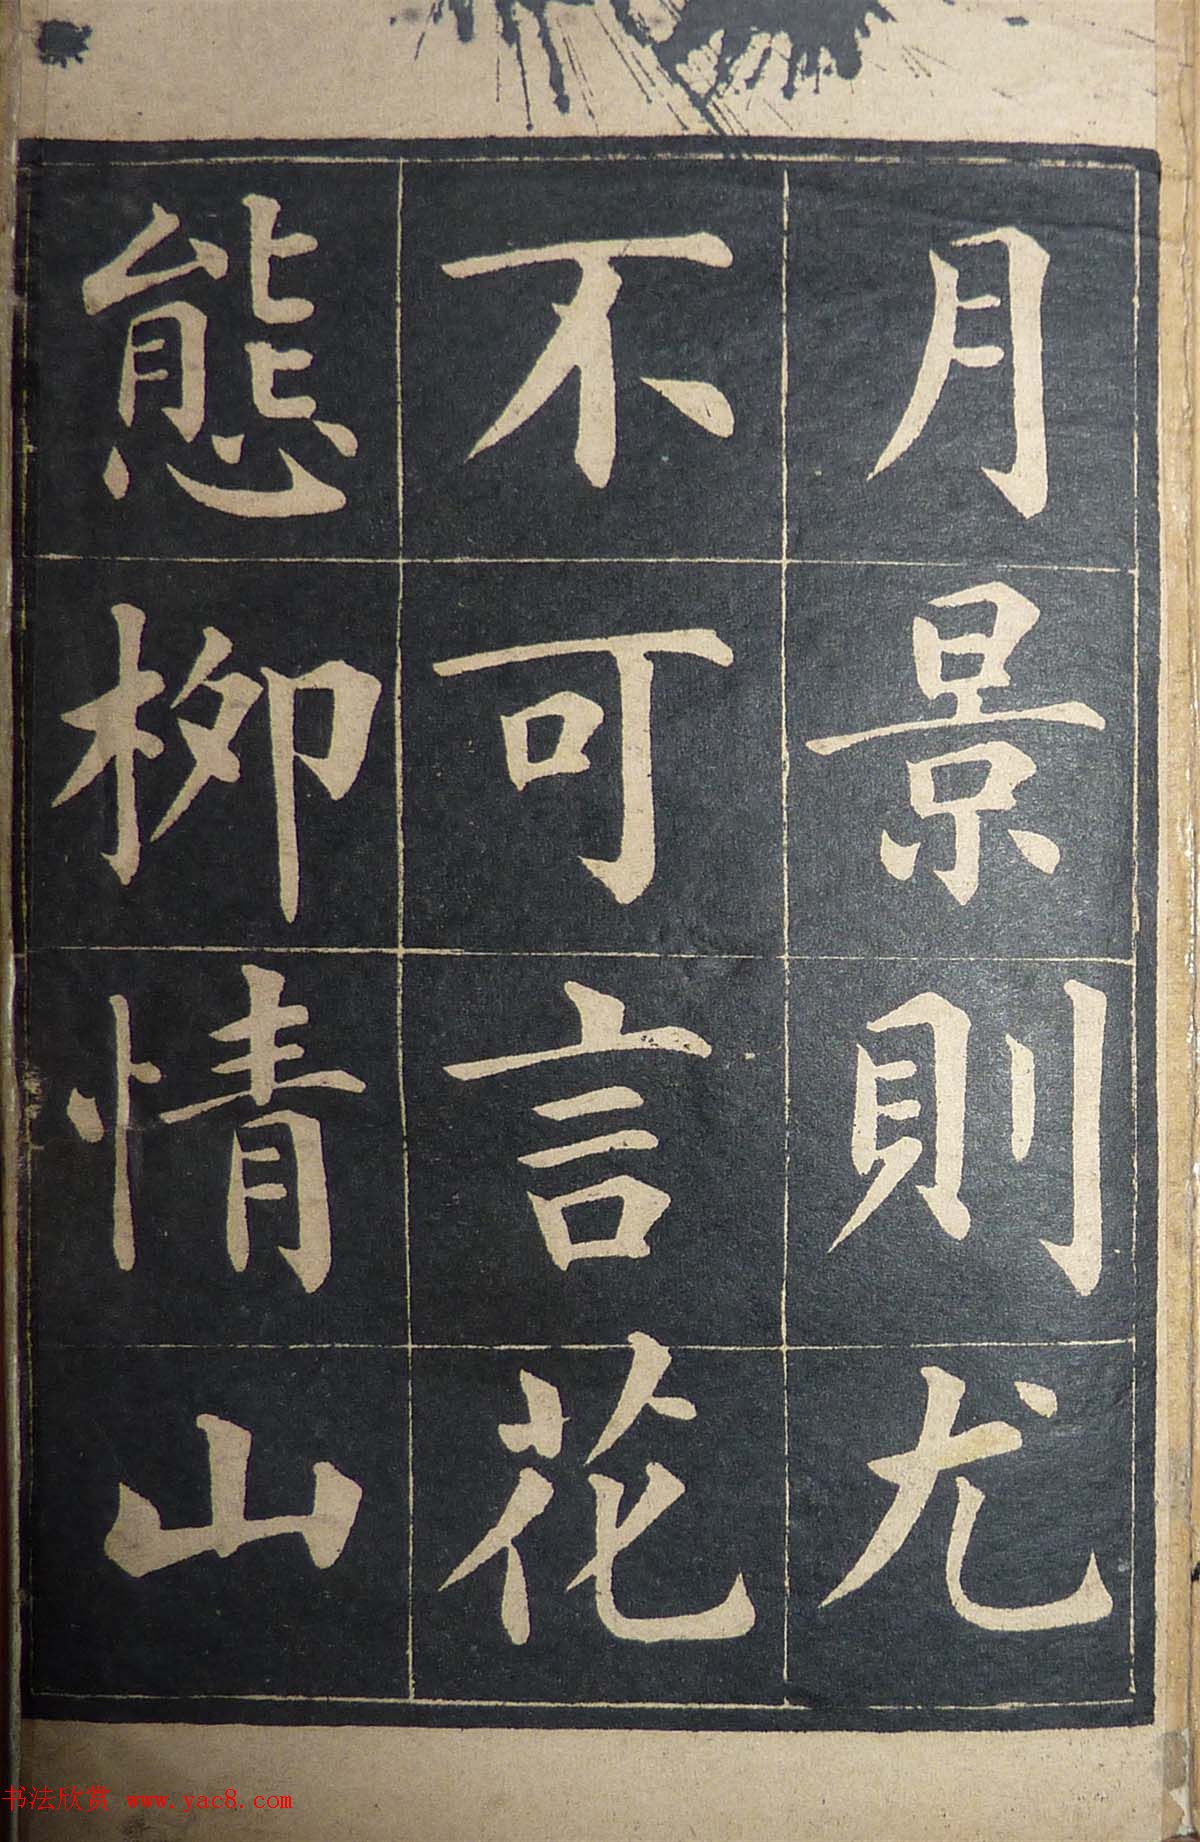 月景則尤
不可言花
態柳情山
书法欣赏 www.yac8.com